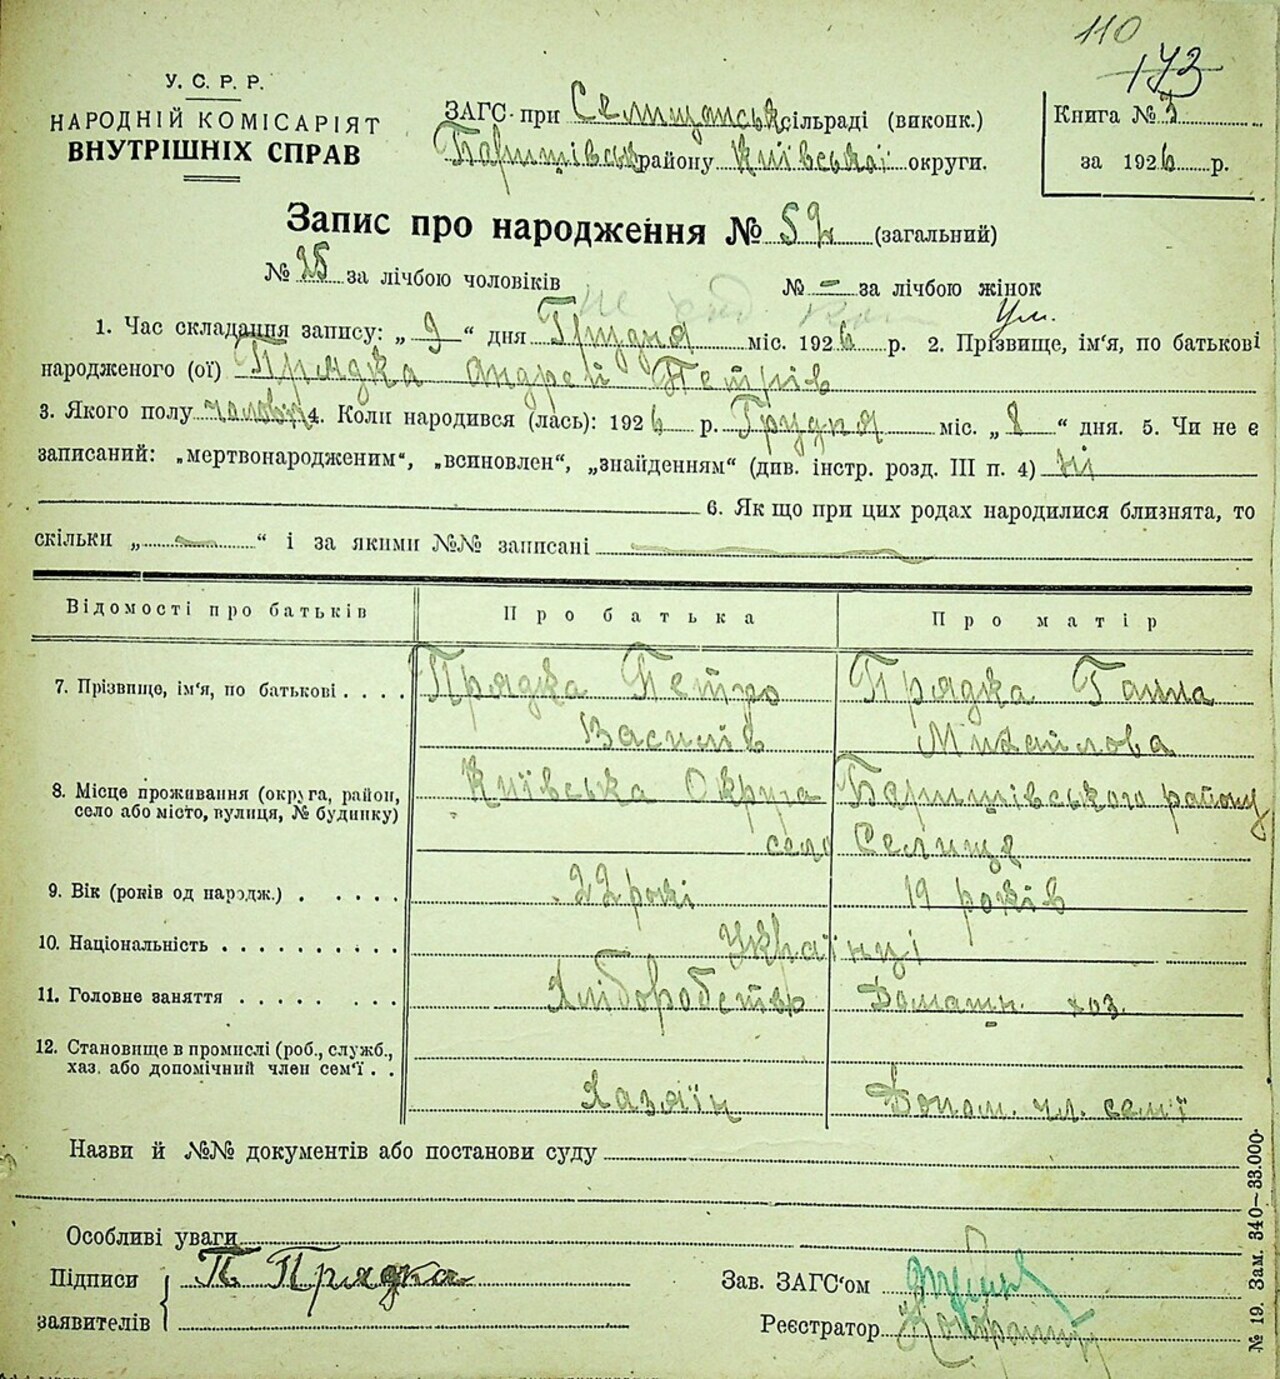 110
173
У. С. Р. Р.
НАРОДНІЙ КОМІСАРІЯТ
ВНУТРІШНІХ СПРАВ
ЗАГС при Селищанськ. сільраді (виконк.)
Баришівськ району Київської округи.
Книга № 3
за 1926 р.
Запис про народження № 52 (загальний)
№ 25 за лічбою чоловіків № – за лічбою жінок
Ум.
1. Час складання запису: „ 9 “ дня Грудня міс. 1926 р. 2. Прізвище, ім‘я, по батькові
народженого (ої) Прядка Андрей Петрів
3. Якого полу чоловіч 4. Коли народився (лась): 1926 р. Грудня міс. „ 8 “ дня. 5. Чи не є
записаний: „мертвонародженим“, „всиновлен“, „знайденням“ (див. інстр. розд. III п. 4) ні
6. Як що при цих родах народилися близнята, то
скільки „ — “ і за якими №№ записані
Відомості про батьків Про батька Про матір
7. Прізвище, ім‘я, по батькові . . . . Прядка Петро Прядка Ганна
Василів Михайлова
8. Місце проживання (округа, район, Київська Округа Баришівського району
село або місто, вулиця, № будинку) село Селище
9. Вік (років од народж.) . . . . . 22 рокі 19 років
10. Національність . . . . . . . . . . Українці
11. Головне заняття . . . . . . . . Хліборобство Домашн. хоз.
12. Становище в промислі (роб., служб.,
хаз. або допомічний член сем‘ї . . Хазяїн Допом. чл. семї
Назви й №№ документів або постанови суду
Особливі уваги
Підписи П Прядка Зав. ЗАГС‘ом
заявителів Реєстратор
№ 19. Зам. 340—33.000.